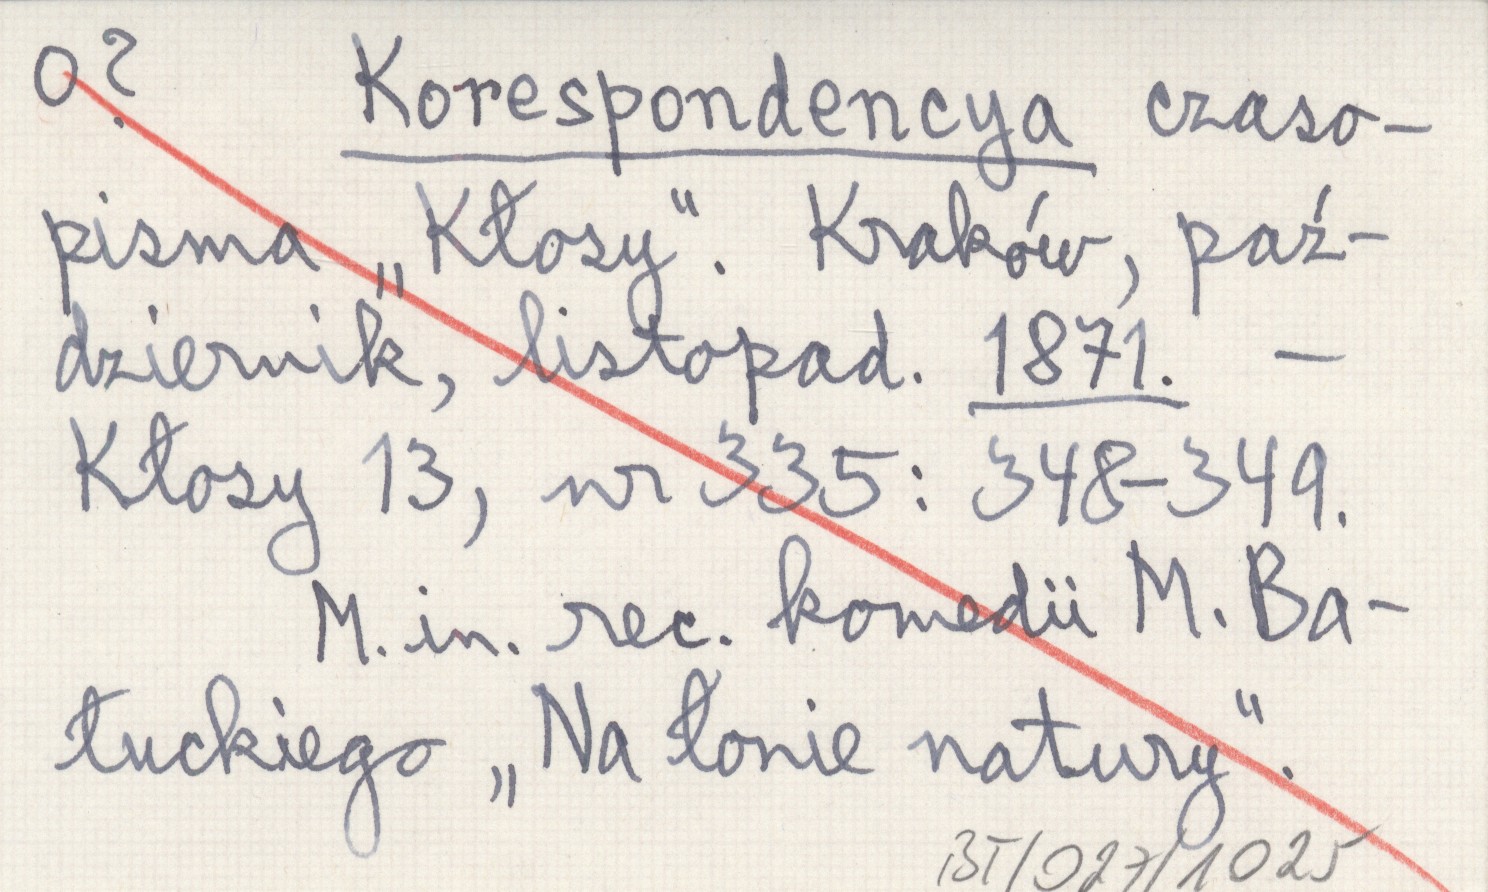 O? Korespondencya czaso-
pisma „Kłosy". Kraków, paź-
dziernik, listopad. 1871. —
Kłosy 13, nr 335: 348-349.
M. in. rec. komedii M. Ba-
łuckiego „Na łonie natury".
BT/027/1025